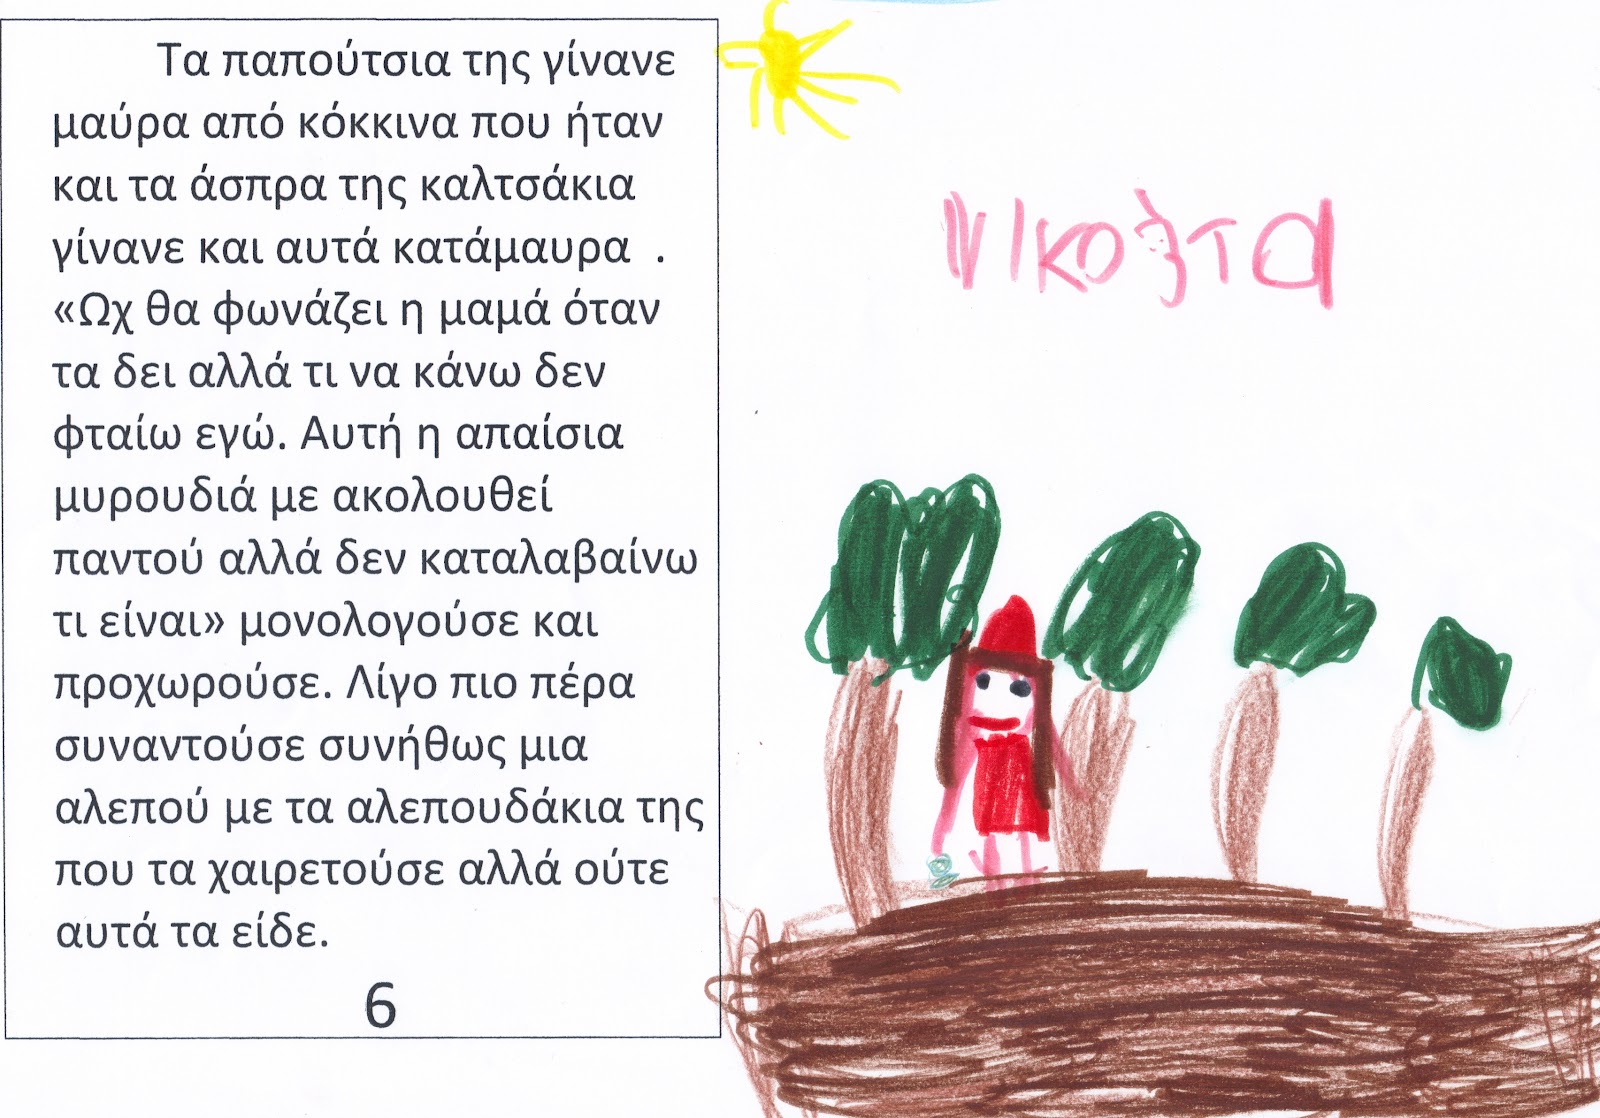 Τα παπούτσια της γίνανε
μαύρα από κόκκινα που ήταν
και τα άσπρα της καλτσάκια
γίνανε και αυτά κατάμαυρα .
«Ωχ θα φωνάζει η μαμά όταν
τα δει αλλά τι να κάνω δεν
φταίω εγώ. Αυτή η απαίσια
μυρουδιά με ακολουθεί
παντού αλλά δεν καταλαβαίνω
τι είναι» μονολογούσε και
προχωρούσε. Λίγο πιο πέρα
συναντούσε συνήθως μια
αλεπού με τα αλεπουδάκια της
που τα χαιρετούσε αλλά ούτε
αυτά τα είδε.
6